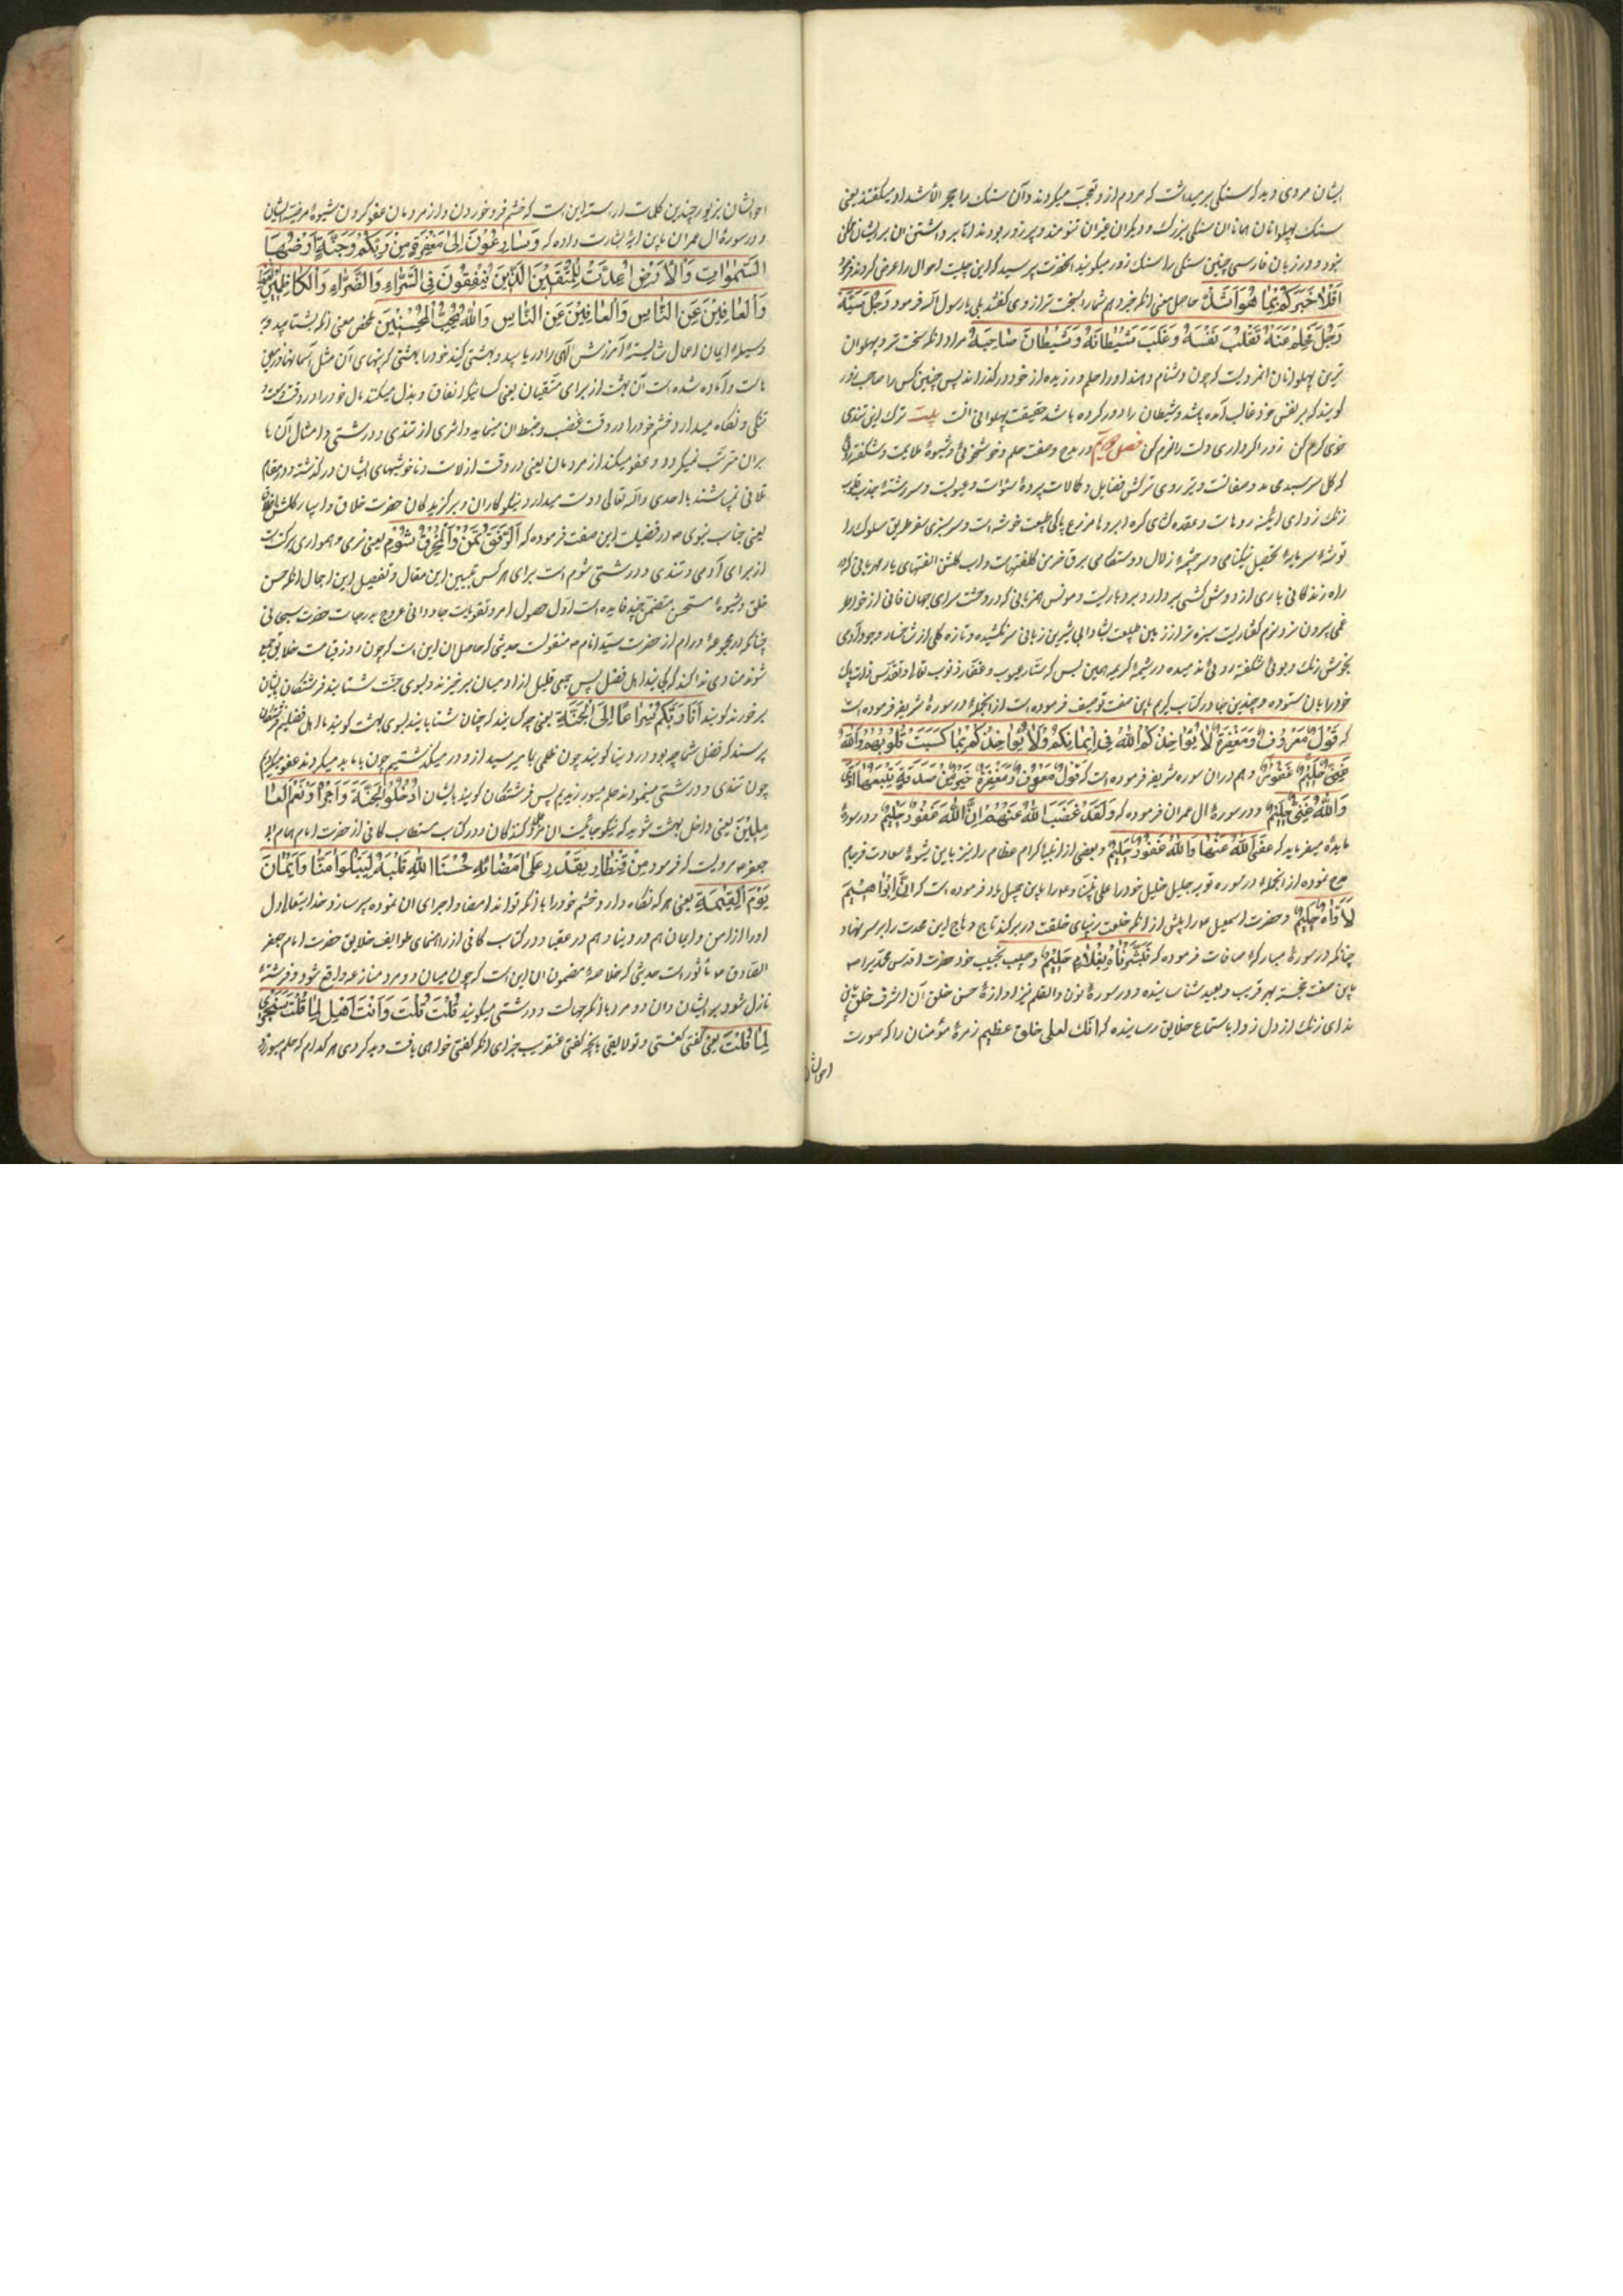 ایشان مردی دید که سنگی برمیداشت که مردم از و تعجب میکردند و آن سنگ را حجر الاشداد میگفتند یعنی
سنگ پهلوانان همانا ان سنگی بزرگ و دیگران غیران تنومند و پر زور بودند اما بر داشتن ان بر ایشان
نبود و در زبان فارسی چنین سنگی را سنگ زور میگویند انحضرت پرسید که این چیست احوال را عرض کردند فرمود
اَفَلا اُخبِرُکُم بِما هُوَ اَشَدُّ حاصل معنی انکه خبر دهم شما را بسخت تر از وی گفتند بلی یا رسول الله فرمود رَجُلٌ سَبَّهُ
رَجُلٌ فَحَلُمَ عَنهُ فَغَلَبَ نَفسَهُ وَ غَلَبَ شَیطانَهُ وَ شَیطانَ صاحِبِهِ مراد انکه سخت تر و پهلوان
ترین پهلوانان انمردیست که چون دشنام دهند او را حلم ورزیده از خود درگذراند پس چنین کس را صاحب زور
گویند که بر نفس خود غالب آمده باشد و شیطان را دور کرده باشد حقیقت پهلوانی انست بیت ترک این تندی
خوی کرم کن زور اگر داری دلت را نرم کن فصل در مدح وصفت حلم و خوشخوئی و شیوهٔ ملایمت و شکفته روئی
که گل سرسبد محامد صفاتست و پیرو روی ترکش فضایل و کمالات پردهٔ سوآت و عیوبت و سررشتهٔ جذب قلوب
زنک زدای ائینه روهاست و عقده کشای گره ابروها مزرع پاکی طینت خوشه است و سرسبزی سفر طریق سلوک را
توشهٔ سرمایهٔ تحصیل نیکنامی و سرچشمهٔ زلال دوستکامی برق خرمن کلفتهاست و اب گلشن الفتهای یار مهربانی که
راه زندگانی باری از دوش کشی بردارد بردباریست و مونس همزبانی که در وحشت سرای جهان فانی از خواطر
غمی بیرون برد نرم گفتاریست سبزه تر از زمین طبیعت بشادابی شیرین زبانی سر نکشیده و تازه گلی از شاخسار وجود آدمی
بخوش رنک و بوئی شکفته روئی ندمیده در شیمهٔ کریمه همین بس که ستار عیوب و غفار ذنوب تعالی و تقدس ذات پاک
خود را بان ستوده و چندین جا در کتاب کریم باین صفت توصیف فرموده است از انجمله در سورهٔ شریفه فرموده است
که قَولٌ مَعرُوفٌ وَ مَغفِرَةٌ لا یُؤاخِذُکُمُ اللهُ فی اَیمانِکُم وَلٰکِن یُؤاخِذُکُم بِما کَسَبَت قُلُوبُکُم وَاللهُ
غَنِیٌّ حَلِیمٌ غَفُورٌ و هم دران سوره شریفه فرموده است که قَولٌ مَعرُوفٌ وَ مَغفِرَةٌ خَیرٌ مِن صَدَقَةٍ یَتبَعُها اَذًی
وَاللهُ غَنِیٌّ حَلِیمٌ و در سورهٔ ال عمران فرموده که وَ لَقَد عَفَا اللهُ عَنهُم اِنَّ اللهَ غَفُورٌ حَلِیمٌ و در سورهٔ
مایده میفرماید که عَفَی اللهُ عَنها وَاللهُ غَفُورٌ حَلِیمٌ و بعضی از انبیاء کرام عظام را نیز باین شیوهٔ سعادت فرجام
مدح نموده از انجمله در سوره توبه جلیل خلیل خود را علی نبینا و علیه باین جمیل یاد فرموده است که اِنَّ اِبراهِیمَ
لَاَوّاهٌ حَلِیمٌ و حضرت اسمعیل را پیش از انکه خلعت زیبای خلقت در بر کند تاج و هاج این محمدت را بر سر نهاد
چنانکه در سورهٔ مبارکهٔ صافات فرموده که فَبَشَّرناهُ بِغُلامٍ حَلِیمٍ و حبیب نجیب خود حضرت اقدس محمد را ص
باین صفت خجسته بهر قریب و بعید شناسانیده و در سورهٔ نون والقلم نیز اوازهٔ حسن خلق آن اشرف خلق باین
ندای زنک از دل زدا باستماع خلایق رسانیده که انک لعلی خلق عظیم زمرهٔ مؤمنان را که صورت
احوالشان
احوالشان بزیور چندین کلمات اراسته این است که خشم فرو خوردن و از مردمان عفو کردن شیوهٔ مرضیهٔ ایشان
و در سورهٔ ال عمران باین ایهٔ بشارت داده که وَ سارِعُونَ اِلی مَغفِرَةٍ مِن رَبِّکُم وَ جَنَّةٍ عَرضُها
السَّمٰواتِ وَالاَرضِ اُعِدَّت لِلمُتَّقِینَ الَّذِینَ یُنفِقُونَ فِی السَّرّاءِ وَالضَّرّاءِ وَالکاظِمِینَ الغَیظَ
وَالعافِینَ عَنِ النّاسِ وَالعافِینَ عَنِ النّاسِ وَاللهُ یُحِبُّ المُحسِنِینَ ملخص معنی انکه بشتابید و بر
وسیلهٔ ایمان و اعمال شایسته آمرزش الهی را دریابید و بهشتی کنید خود را بهشتی که پهنای آن مثل آسمانها و زمین
هاست و آماده شده است آن بهشت از برای متقیان یعنی کسانیکه انفاق و بذل میکنند مال خود را در وقت وسعت و
تنگی و نگاه میدارد خشم خود را در وقت غضب و ضبط ان مینماید و اثری از تندی و درشتی و امثال آن ها
بران مترتب نمیگردد و عفو میکند از مردمان یعنی در وقت از لات و ناخوشیهای ایشان درگذشته و در مقام
تلافی نمیباشند با احدی والله تعالی دوست میدارد نیکوکاران و برگزیدکان حضرت خلاق و ابیار گلشن
یعنی جناب نبوی ص در فضیلت این صفت فرموده که اَلرِّفقُ یُمنٌ وَالخُرقُ شُومٌ یعنی نرمی و همواری برکت است
از برای آدمی و تندی و درشتی شوم است برای هر کس تبیین این مقال و تفصیل این اجمال انکه حسن
خلق و شیوهٔ مستحسن متضمن چند فایده است اول حصول اجر و تقویات جاودانی عروج بدرجات حضرت سبحانی
چنانکه در مجموعهٔ ورام از حضرت سید انام ص منقولست حدیثی که حاصل ان این است که چون روز قیامت خلایق جمع
شوند منادی ندا کند که کجایند اهل فضل پس جمعی قلیل از ان میان برخیزند و بسوی جنت شتابند فرشتگان بایشان
برخورند گویند اِنّا نَرَیکُم سِراعًا اِلَی الجَنَّةِ یعنی چه کسانید که چنان شتابانید بسوی بهشت گویند ما اهل فضلیم فرشتگان
پرسند که فضل شما چه بود در دنیا گویند چون ظلمی بما میرسید از و در میگذشتیم چون با ما بد میکردند عفو میکردیم
چون تندی و درشتی مینمودند حلم میورزیدیم پس فرشتگان گویند بایشان اُدخُلُوا الجَنَّةَ وَ اَجرًا وَ نِعمَ العا
مِلِینَ یعنی داخل بهشت شوید که نیکو جائیست ان مزد کنندکان و در کتاب مستطاب کافی از حضرت امام همام
جعفر ع مرویست که فرمود مَن کَظَمَ
یَومَ القِیٰمَةِ یعنی هر که نگاه دارد خشم خود را با انکه تواند امضا و اجرای ان نموده پر سازد خدایتعالی دل
او را از امن و ایمان هم در دنیا و هم در عقبا و در کتاب کافی از راهنمای طوایف خلایق حضرت امام جعفر
الصادق ع مأثور است حدیثی که خلاصهٔ مضمون ان این است که چون میان دو مرد منازعه واقع شود دو فرشتهٔ
نازل شود بر ایشان و ان دو مرد با انکه جهالت و درشتی میکویند قُلتَ قُلتَ وَ اَنتَ اَهلٌ لِما قُلتَ سَتُجزی
لِما قُلتَ یعنی گفتی گفتی و تو لایقی بانچه گفتی عنقریب جزای انکه گفتی خواهی یافت و بد کردی هر کدام که حلم میورزد